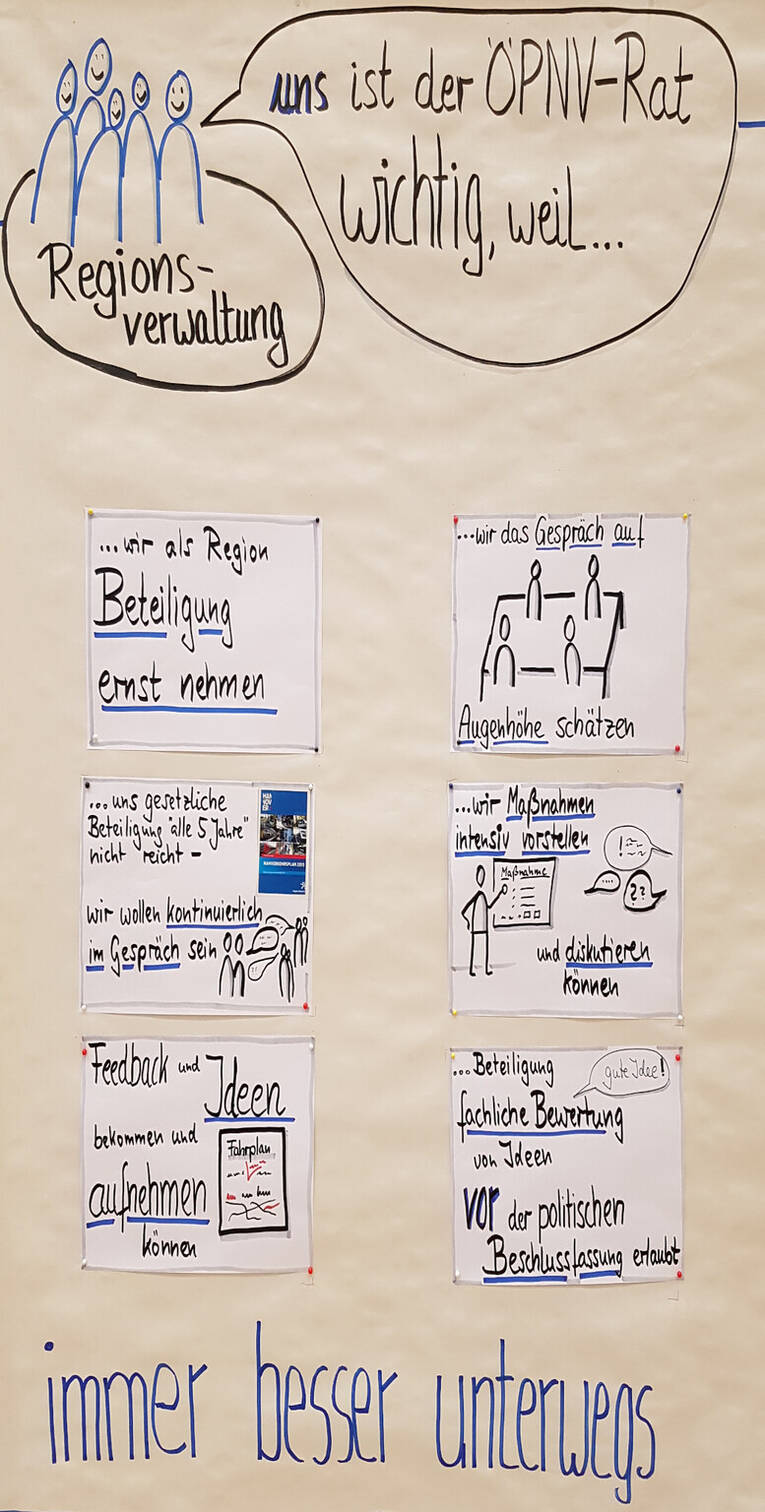 uns ist der ÖPNV-Rat
wichtig, weil...
Regions-
verwaltung
...wir als Region
Beteiligung
ernst nehmen
...wir das Gespräch auf
Augenhöhe schätzen
...uns gesetzliche
Beteiligung "alle 5 Jahre"
nicht reicht -
wir wollen kontinuierlich
im Gespräch sein
HAN
NOV
ER
NAHVERKEHRSPLAN
...wir Maßnahmen
intensiv vorstellen
Maßnahme
!
??
und diskutieren
können
Feedback und Ideen
bekommen und
aufnehmen
können
Fahrplan
...Beteiligung
gute Idee!
fachliche Bewertung
von Ideen
vor der politischen
Beschlussfassung erlaubt
immer besser unterwegs